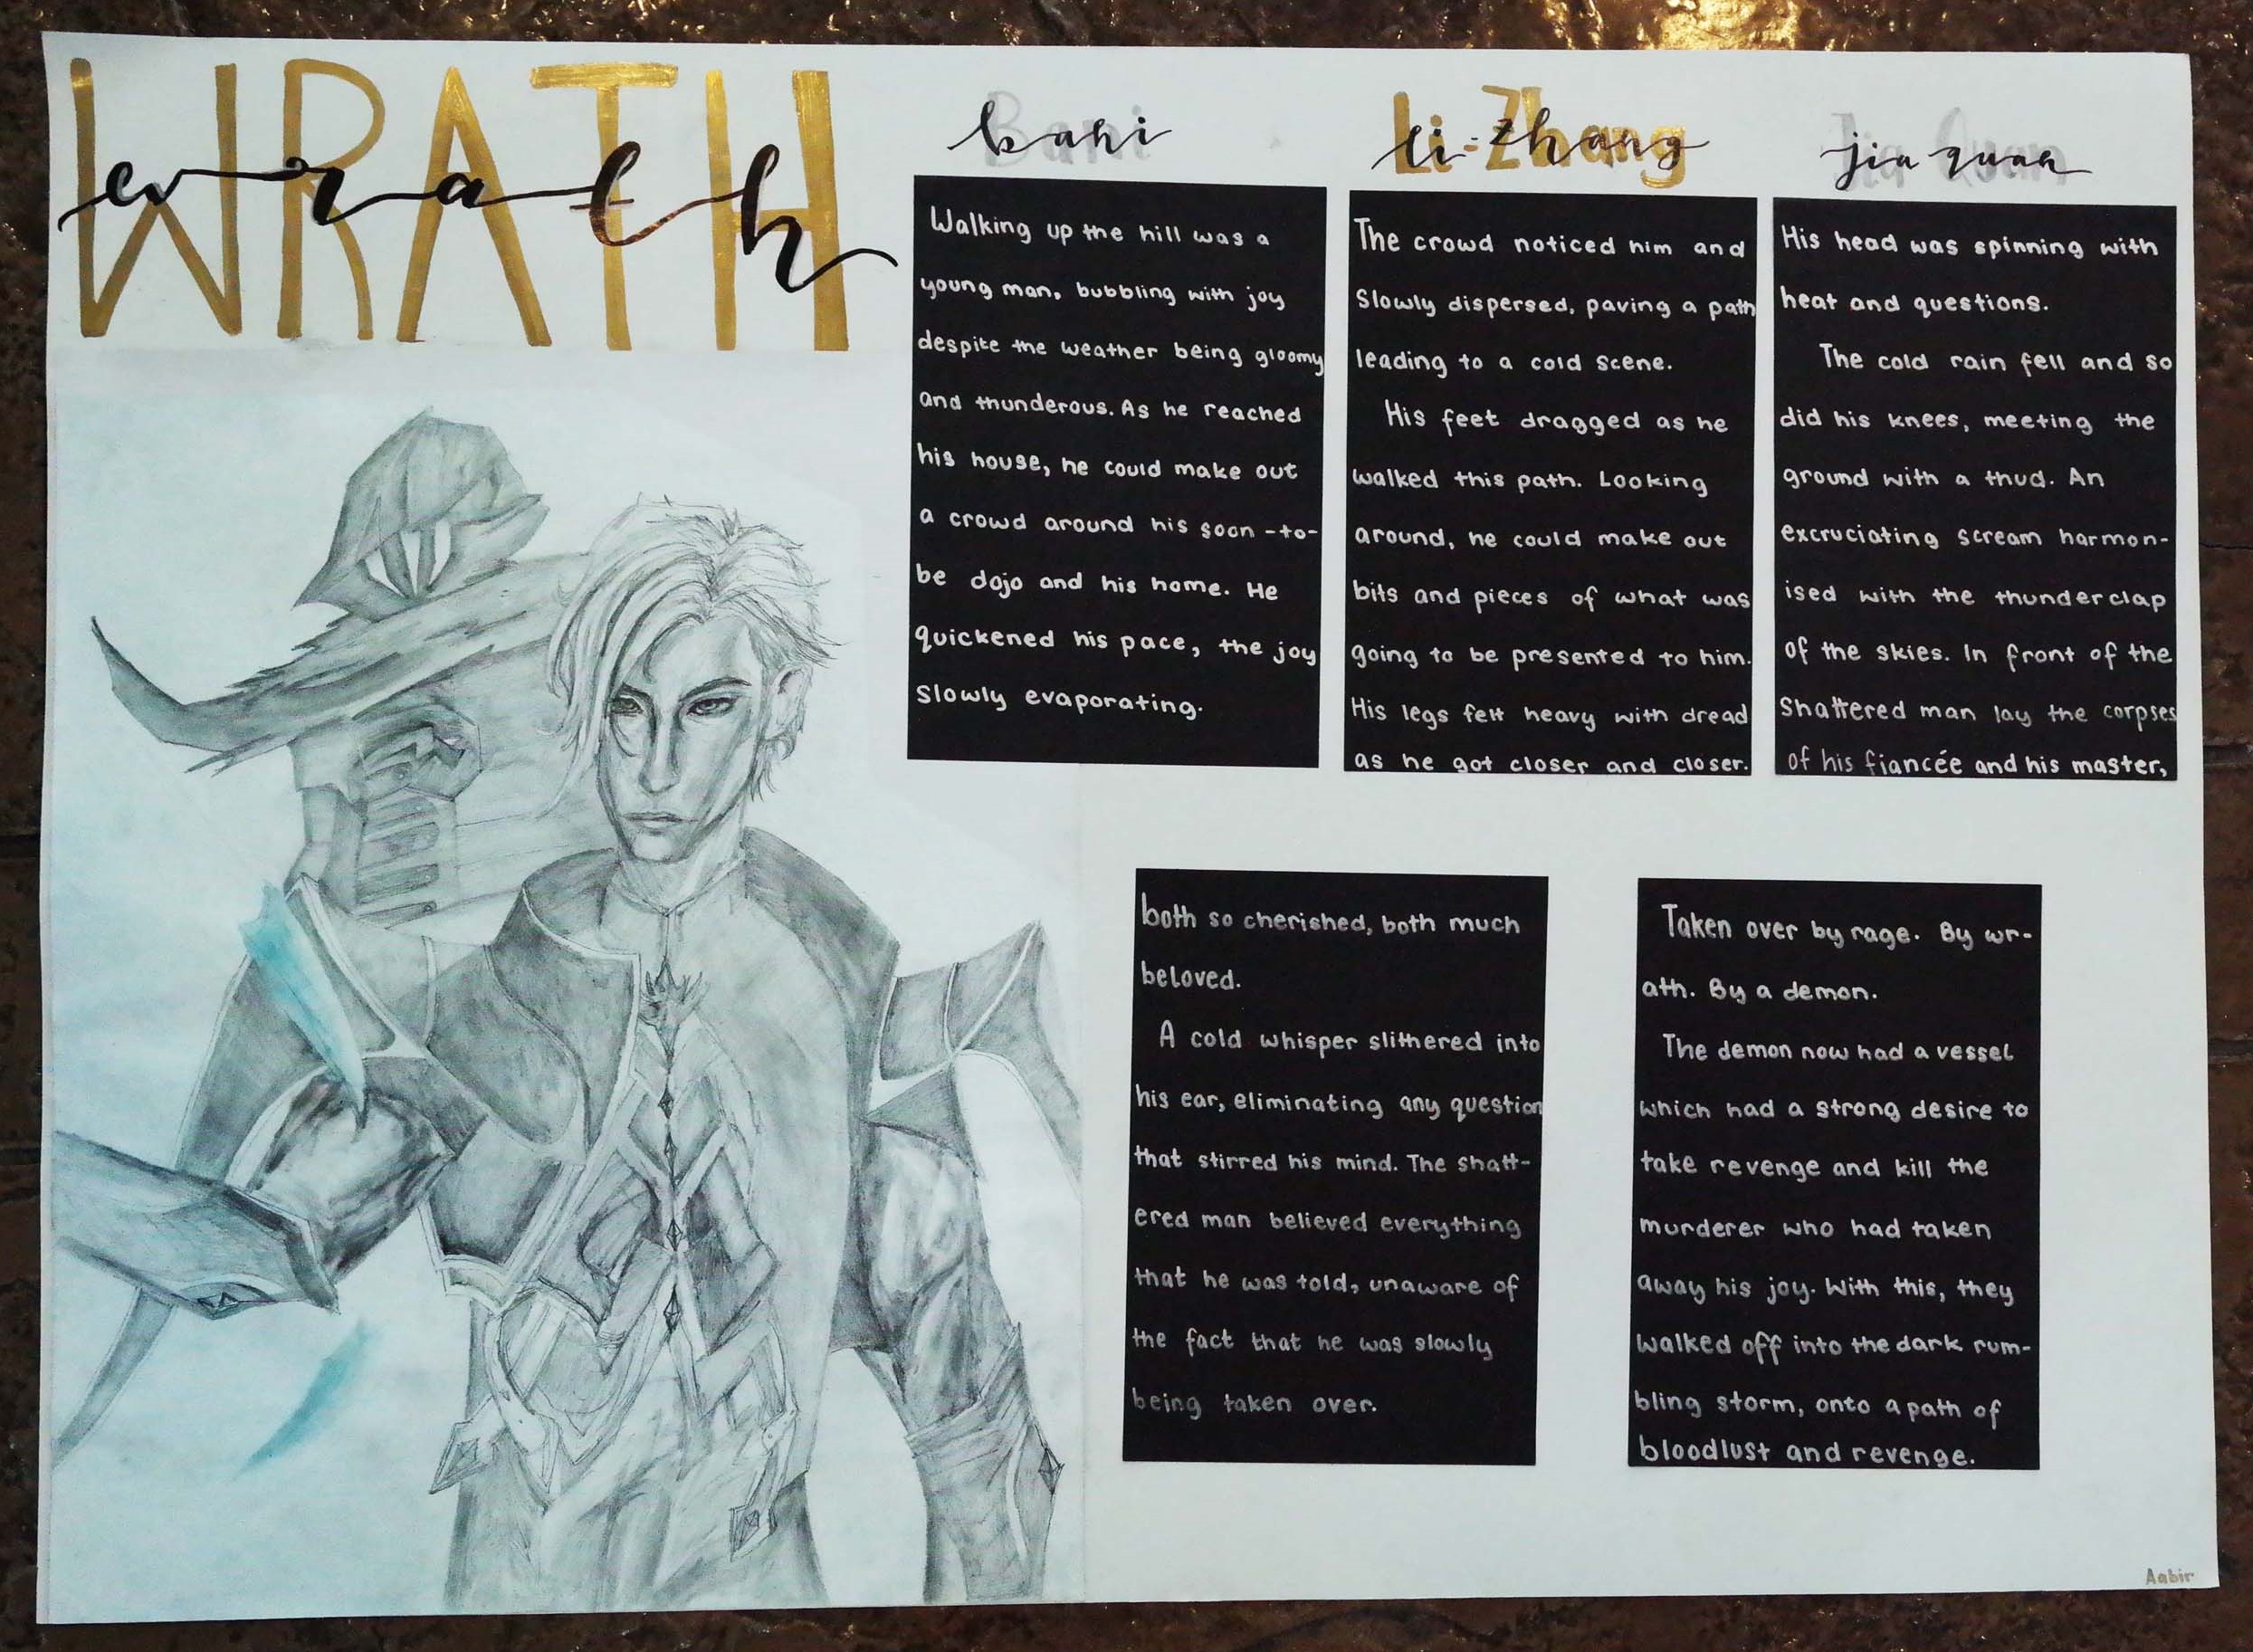 WRATH
wrath
Bani
bani
Li-Zhang
li-zhang
Jia Quan
jia quan
Walking up the hill was a
young man, bubbling with joy
despite the weather being gloomy
and thunderous. As he reached
his house, he could make out
a crowd around his soon-to-
be dojo and his home. He
quickened his pace, the joy
slowly evaporating.
The crowd noticed him and
slowly dispersed, paving a path
leading to a cold scene.
His feet dragged as he
walked this path. Looking
around, he could make out
bits and pieces of what was
going to be presented to him.
His legs felt heavy with dread
as he got closer and closer.
His head was spinning with
heat and questions.
The cold rain fell and so
did his knees, meeting the
ground with a thud. An
excruciating scream harmon-
ised with the thunderclap
of the skies. In front of the
shattered man lay the corpses
of his fiancée and his master,
both so cherished, both much
beloved.
A cold whisper slithered into
his ear, eliminating any question
that stirred his mind. The shatt-
ered man believed everything
that he was told, unaware of
the fact that he was slowly
being taken over.
Taken over by rage. By wr-
ath. By a demon.
The demon now had a vessel
which had a strong desire to
take revenge and kill the
murderer who had taken
away his joy. With this, they
walked off into the dark rum-
bling storm, onto a path of
bloodlust and revenge.
Aabir